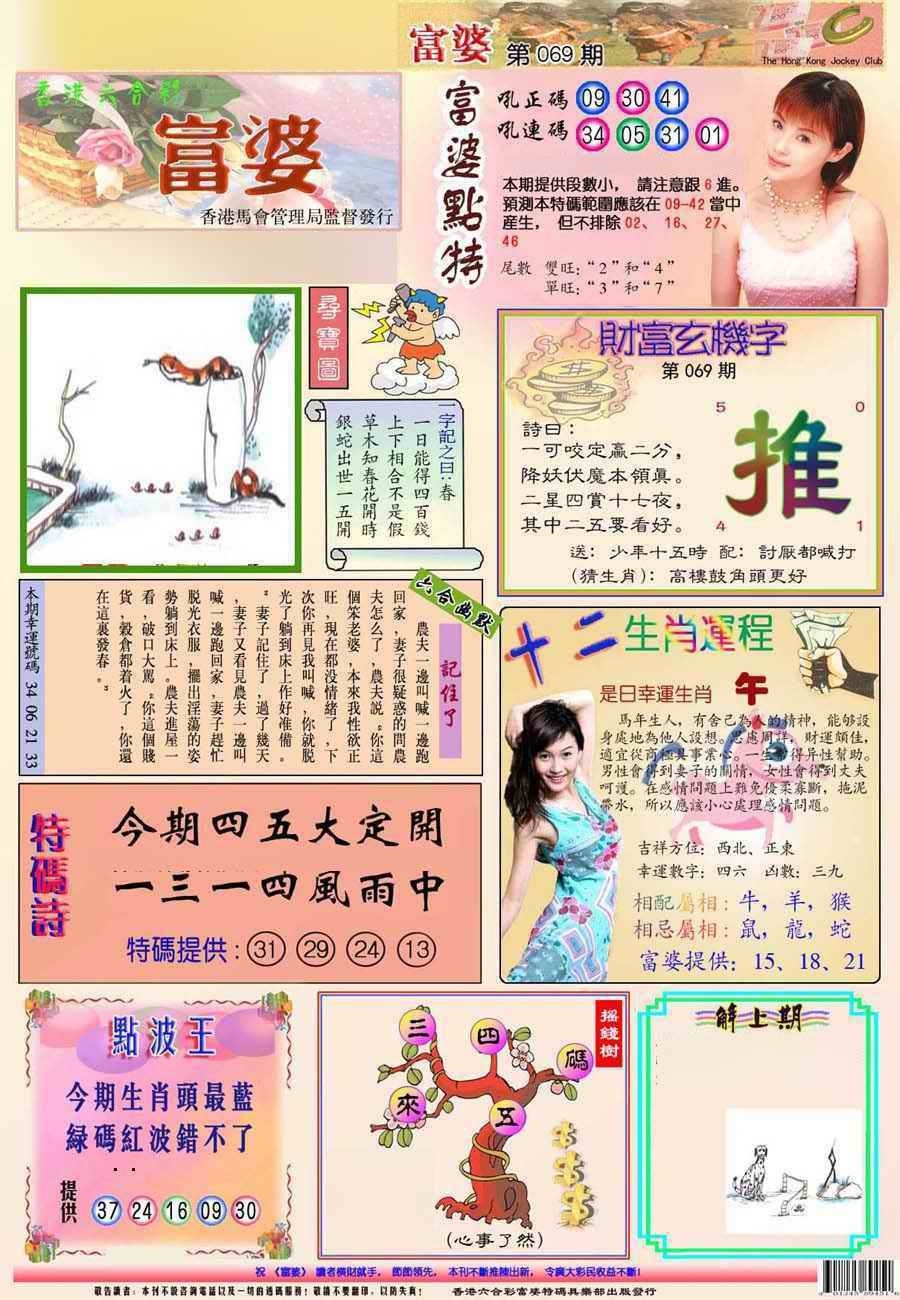 富婆 第069期
The Hong Kong Jockey Club
香港六合彩
富婆
香港馬會管理局監督發行
富婆點特
吼正碼 09 30 41
吼連碼 34 05 31 01
本期提供段數小， 請注意跟6進。
預測本特碼範圍應該在09-42當中
産生， 但不排除02、 16、 27、
46
尾數 雙旺：“2”和“4”
單旺：“3”和“7”
尋寶圖
一字記之曰：春
一日能得四百錢
上下相合不是假
草木知春花開時
銀蛇出世一五開
財富玄機字
第069期
詩曰：
一可咬定贏二分，
降妖伏魔本領眞。
二星四賞十七夜，
其中二五要看好。
5 0
推
4 1
送： 少年十五時 配： 討厭都喊打
（猜生肖）： 高樓鼓角頭更好
六合幽默
記住了
農夫一邊叫喊一邊跑
回家，妻子很疑惑的問農
夫怎么了，農夫説。你這
個笨老婆，本來我性欲正
旺，現在都没情緒了，下
次你再見我叫喊，你就脱
光了躺到床上作好准備。
“妻子記住了，過了幾天
，妻子又看見農夫一邊叫
喊一邊跑回家，妻子趕忙
脱光衣服，擺出淫蕩的姿
勢躺到床上。農夫進屋一
看，破口大駡。“你這個賤
貨，穀倉都着火了，你還
在這裏發春。”
本期幸運號碼 34 06 21 33
十二生肖運程
是日幸運生肖 午
馬年生人，有舍己為人的精神，能够設
身處地為他人設想。思慮周詳，財運頗佳，
適宜從商極具事業心。一生幫得异性幫助。
男性會得到妻子的關情，女性會得到丈夫
呵護。在感情問題上難免優柔寡斷，拖泥
帶水，所以應該小心處理感情問題。
吉祥方位：西北、正東
幸運數字：四六 凶數：三九
相配屬相：牛，羊，猴
相忌屬相：鼠，龍，蛇
富婆提供：15、18、21
特碼詩
今期四五大定開
一三一四風雨中
特碼提供：31 29 24 13
點波王
今期生肖頭最藍
緑碼紅波錯不了
提供 37 24 16 09 30
摇錢樹
三 四 碼
來 五
（心事了然）
解上期
祝 《富婆》 讀者橫財就手， 節節領先， 本刊不斷推陳出新， 令廣大彩民收益不斷！
敬告讀者：本刊不設咨詢電話以及一切的透碼服務！敬請不要翻印，以防失真！ 香港六合彩富婆特碼具樂部出版發行